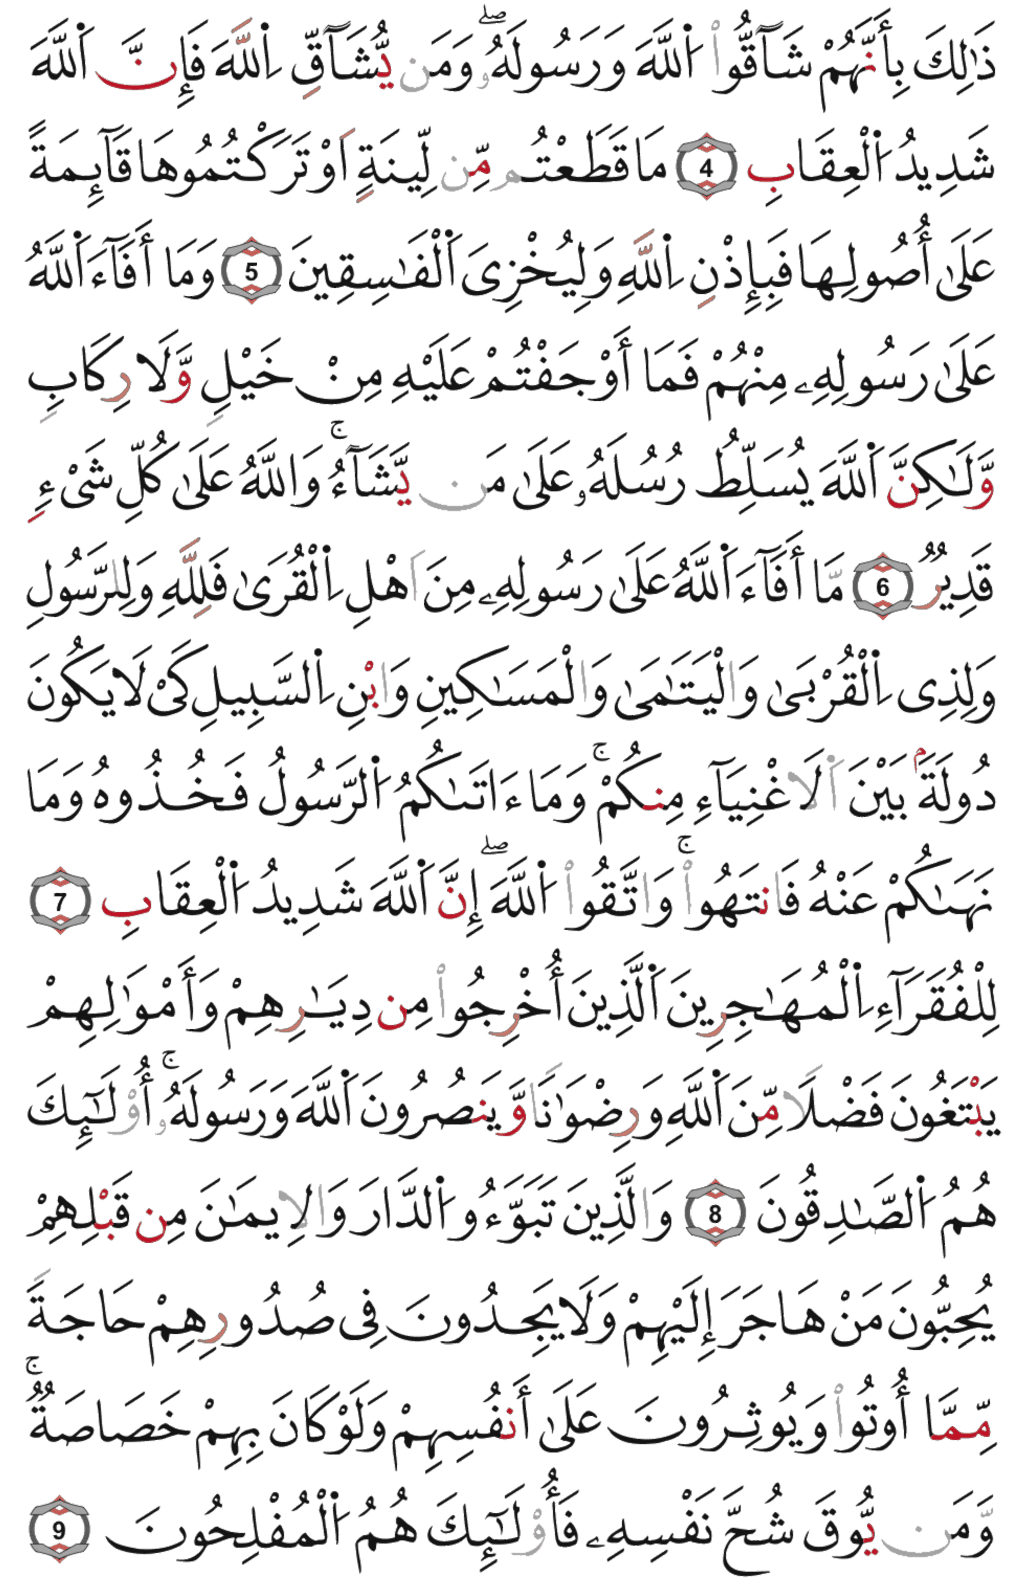 ذَٰلِكَ بِأَنَّهُمْ شَآقُّوا۟ اَ۬للَّهَ وَرَسُولَهُۥۖ وَمَن يُّشَآقِّ اِ۬للَّهَ فَإِنَّ اَ۬للَّهَ
شَدِيدُ اُ۬لْعِقَابِ 4 مَا قَطَعْتُم مِّن لِّينَةٍ اَوْ تَرَكْتُمُوهَا قَآئِمَةً
عَلَىٰ أُصُولِهَا فَبِإِذْنِ اِ۬للَّهِ وَلِيُخْزِىَ اَ۬لْفَٰسِقِينَ 5 وَمَا أَفَآءَ اَ۬للَّهُ
عَلَىٰ رَسُولِهِۦ مِنْهُمْ فَمَا أَوْجَفْتُمْ عَلَيْهِ مِنْ خَيْلٍ وَّلَا رِكَابٍ
وَّلَٰكِنَّ اَ۬للَّهَ يُسَلِّطُ رُسُلَهُۥ عَلَىٰ مَن يَّشَآءُۚ وَاللَّهُ عَلَىٰ كُلِّ شَىْءٍ
قَدِيرٌ 6 مَّا أَفَآءَ اَ۬للَّهُ عَلَىٰ رَسُولِهِۦ مِنَ اَهْلِ اِ۬لْقُرَىٰ فَلِلَّهِ وَلِلرَّسُولِ
وَلِذِى اِ۬لْقُرْبَىٰ وَالْيَتَٰمَىٰ وَالْمَسَٰكِينِ وَابْنِ اِ۬لسَّبِيلِ كَىْ لَا يَكُونَ
دُولَةَۢ بَيْنَ اَ۬لَاغْنِيَآءِ مِنكُمْۚ وَمَا ءَاتَىٰكُمُ اُ۬لرَّسُولُ فَخُذُوهُ وَمَا
نَهَىٰكُمْ عَنْهُ فَانتَهُوا۟ۚ وَاتَّقُوا۟ اُ۬للَّهَۖ إِنَّ اَ۬للَّهَ شَدِيدُ اُ۬لْعِقَابِ 7
لِلْفُقَرَآءِ اِ۬لْمُهَٰجِرِينَ اَ۬لَّذِينَ أُخْرِجُوا۟ مِن دِيَٰرِهِمْ وَأَمْوَٰلِهِمْ
يَبْتَغُونَ فَضْلًا مِّنَ اَ۬للَّهِ وَرِضْوَٰنًا وَّيَنصُرُونَ اَ۬للَّهَ وَرَسُولَهُۥۚ أُو۟لَٰٓئِكَ
هُمُ اُ۬لصَّٰدِقُونَ 8 وَالَّذِينَ تَبَوَّءُو اُ۬لدَّارَ وَالِايمَٰنَ مِن قَبْلِهِمْ
يُحِبُّونَ مَنْ هَاجَرَ إِلَيْهِمْ وَلَا يَجِدُونَ فِى صُدُورِهِمْ حَاجَةً
مِّمَّا أُوتُوا۟ وَيُوثِرُونَ عَلَىٰ أَنفُسِهِمْ وَلَوْ كَانَ بِهِمْ خَصَاصَةٌۚ
وَّمَن يُّوقَ شُحَّ نَفْسِهِۦ فَأُو۟لَٰٓئِكَ هُمُ اُ۬لْمُفْلِحُونَ 9